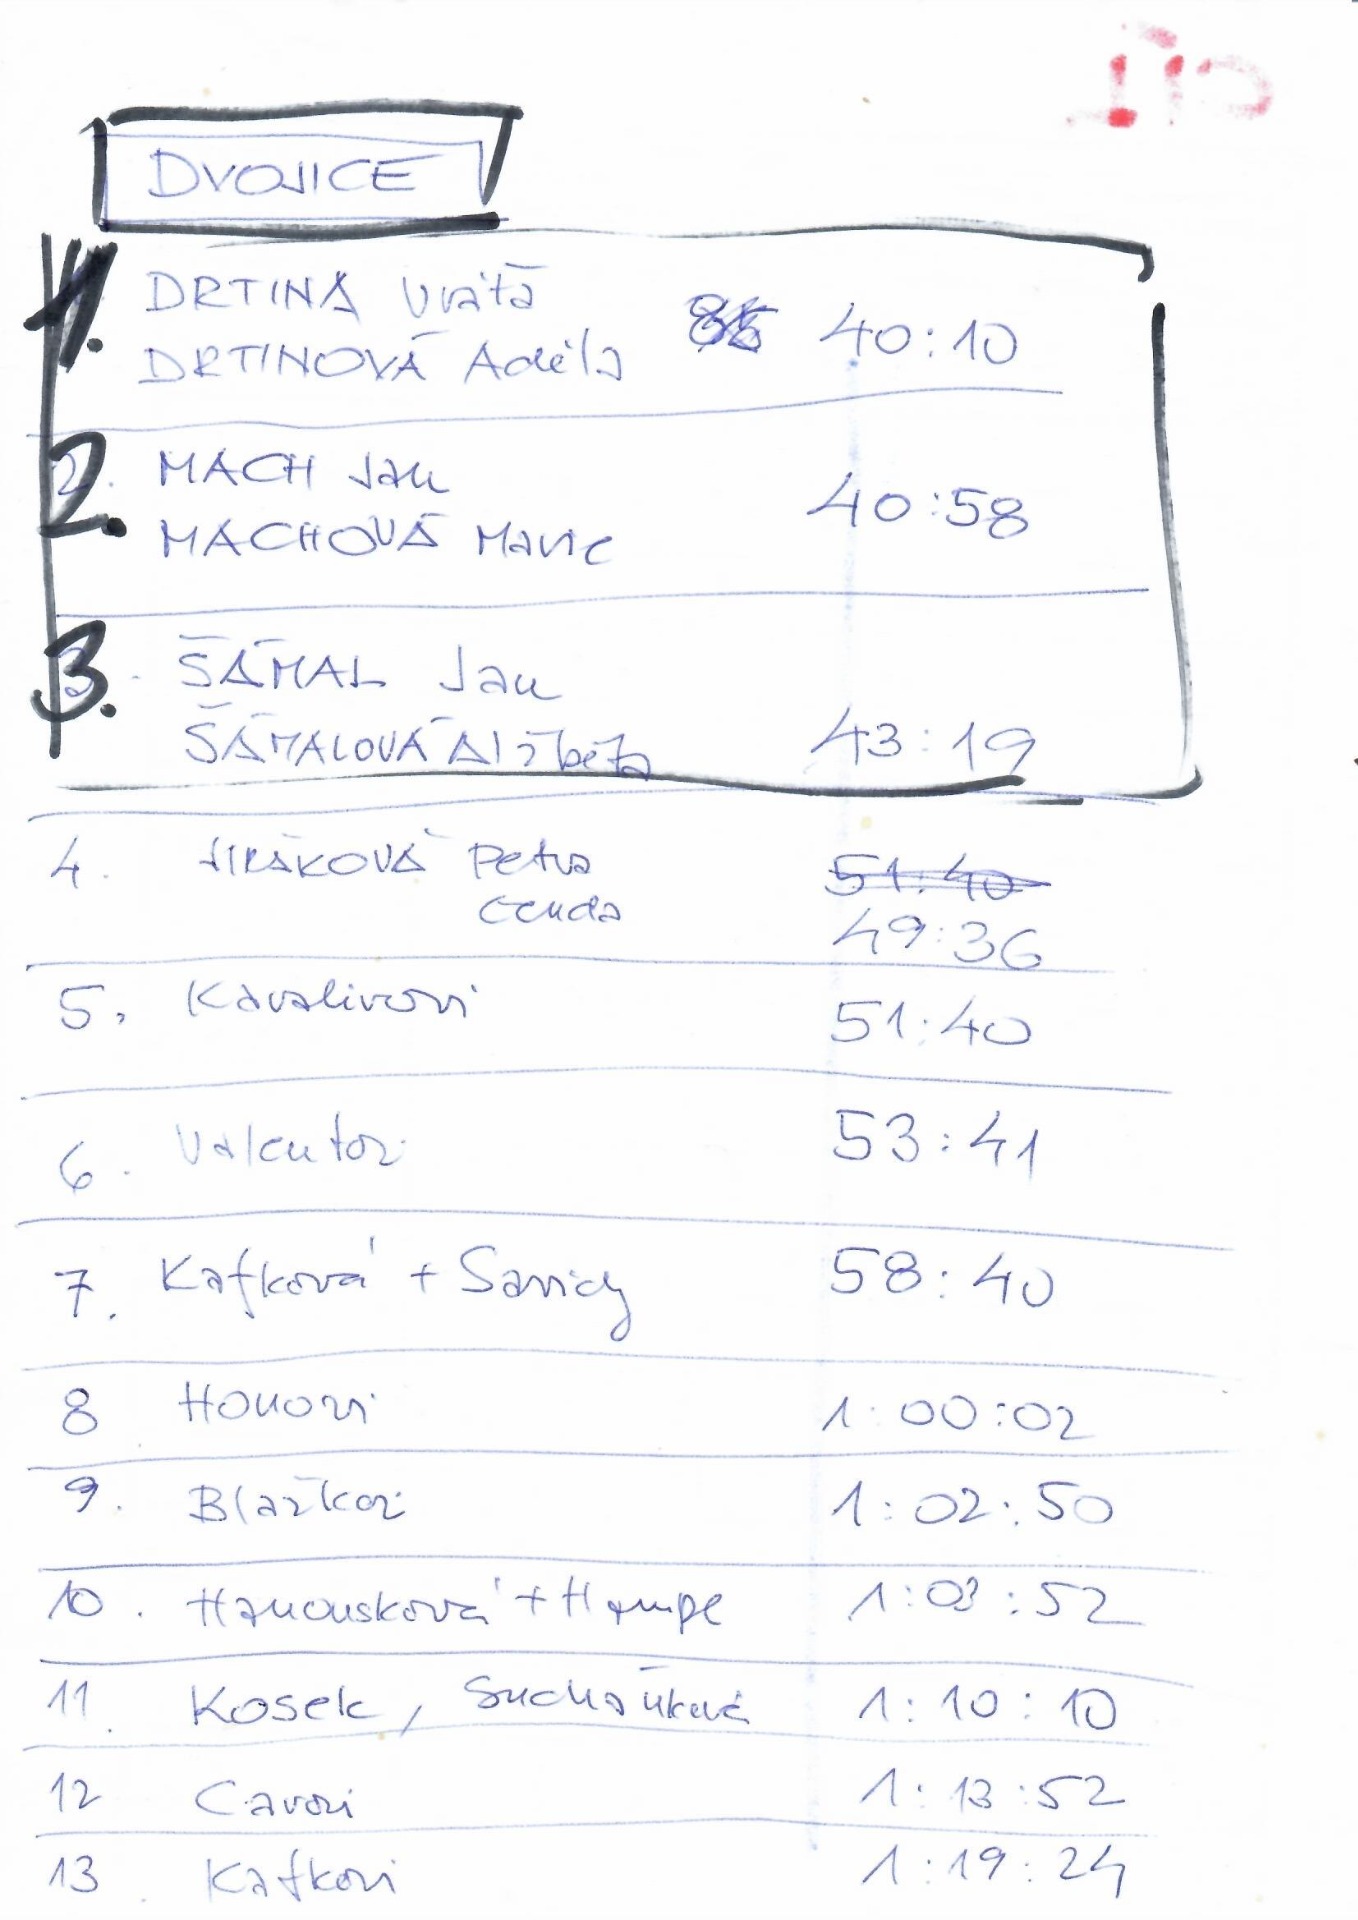 CÍL
DVOJICE
1. DRTINA Vráťa
DRTINOVÁ Adéla 40:10
2. MACH Jan
MACHOVÁ Marie 40:58
3. ŠÁMAL Jan
ŠÁMALOVÁ Alžběta 43:19
4. JIRÁKOVÁ Petra 51:40
Čenda 49:36
5. Kavalirovi 51:40
6. Valentovi 53:41
7. Kafková + 58:40
8 Honovi 1:00:02
9. Blažkovi 1:02:50
10. Hanousková + Hampe 1:03:52
11. Kosek, Suchánková 1:10:10
12 Cavovi 1:13:52
13 Kafkovi 1:19:24